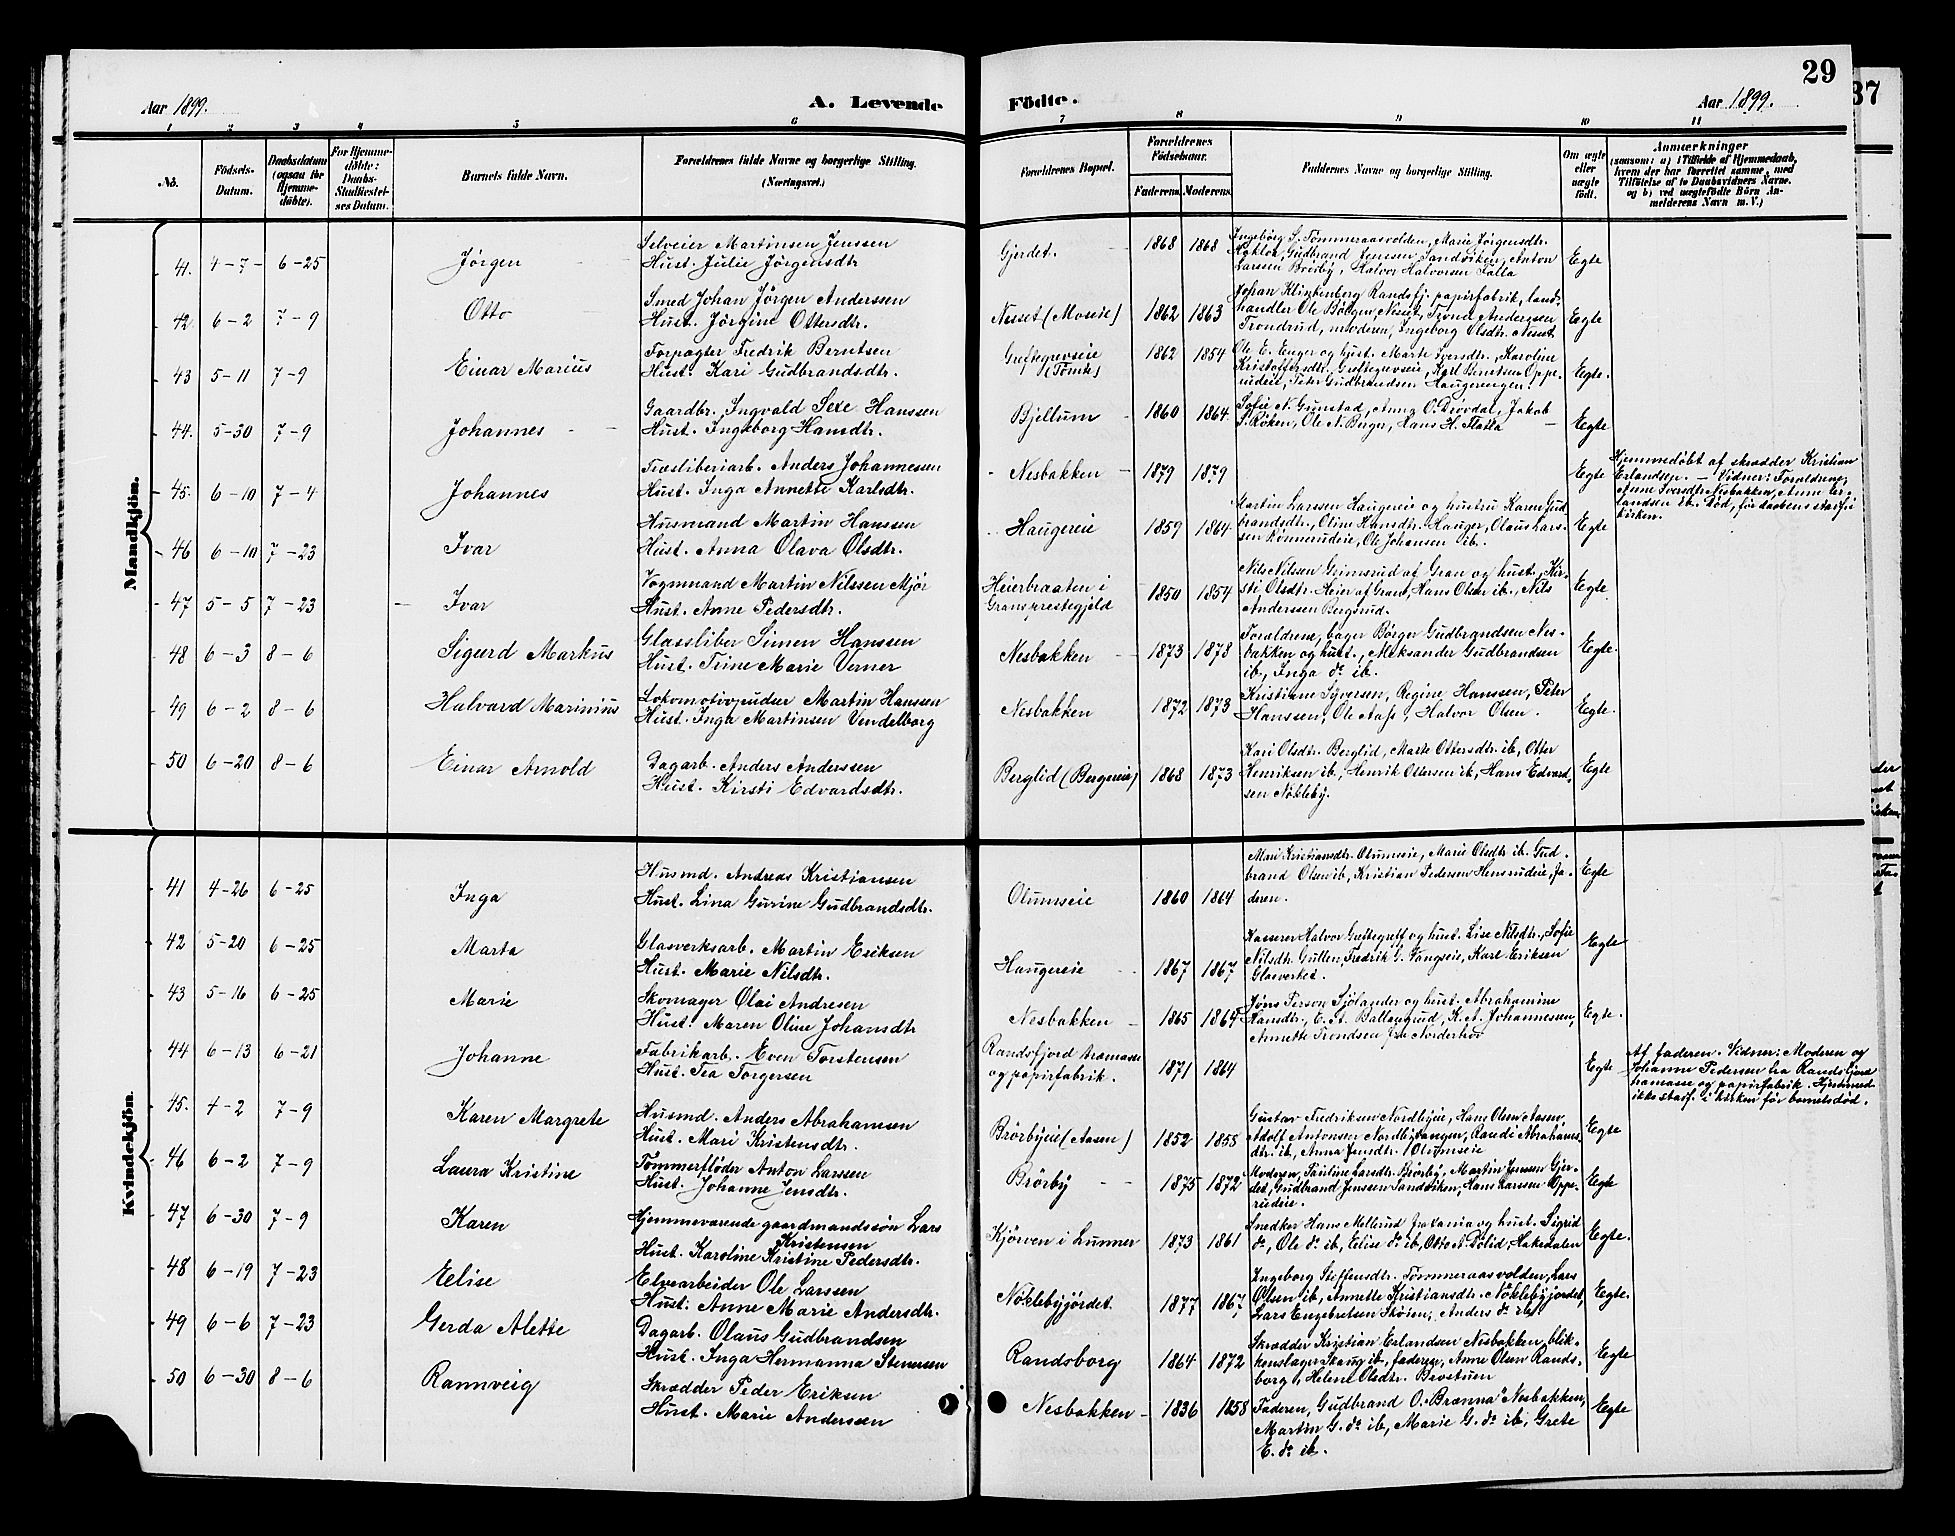 29
37
Aar 1899.
A. Levende Födte.
Aar 1899.
1 2 3 4 5 6 7 8 9 10 11
No.
Födsels-Datum.
Daabsdatum (ogsaa for Hjemmedöbte).
For Hjemmedöbte: Daabs-Stadfæstelses Datum.
Barnets fulde Navn.
Forældrenes fulde Navne og borgerlige Stilling.
(Næringsvei.)
Forældrenes Bopæl.
Forældrenes Födselsaar.
Faderens. Moderens.
Faddernes Navne og borgerlige Stilling.
Om ægte eller uægte födt.
Anmærkninger
(saasom: a) i Tilfælde af Hjemmedaab,
hvem der har forrettet samme, med
Tilföielse af to Daabsvidners Navne,
og b) ved uægtefödte Börn Anmelderens Navn m. V.)
Mandkjön.
41. 4-7- 6-25 Jörgen
Selveier Martinsen Jenssen
Hust. Julie Jörgensdtr
Gjerdet. 1868 1868
Ingebörg S. Tömmeraasvolden, Marie Jörgensdtr.
Gudbrand Jenssen Sandviken, Anton
Larssen Brörby, Halvor Halvorsen Falla
Egte
42. 6-2 7-9 Otto
Smed Johan Jörgen Anderssen
Hust. Jörgine Ottersdtr.
Nesset (Moseie) 1862 1863
Johan Klinkenberg Randsfj. papirfabrik, land-
handler Ole Nesset, Trond Anderssen
Trondrud, moderen, Ingeborg Olsdtr. Nesset
Egte
43 5-11 7-9 Einar Marius
Forpagter Fredrik Berntsen
Hust. Kari Gudbrandsdtr.
Greftegrevseie
1862 1854
Ole E. Enger og hust. Marte Iversdtr., Karoline
Kristoffersdtr. Greftegrevseie, Karl Berntsen Oppe-
rudeie, Peter Gudbrandsen Haugerengen.
Egte.
44. 5-30 7-9 Johannes
Gaardbr. Ingvald Sexe Hanssen
Hust. Ingeborg Hansdtr.
Bjellum 1860 1864
Sofie N. Gunstad, Anna O. Jakob
S. Röken, Ole N. Berger, Hans H. Flatla
Egte
45. 6-10 7-4 Johannes
Træsliberiarb. Anders Johannesen
Hust. Inga Annette Karlsdtr.
Nesbakken 1879 1879
Egte
Hjemmedöbt af skrædder Kristian
Erlandsen. - Vidner: Forældrene,
Anne Iversdtr. Nesbakken, Anne Er-
landsen ib. Död, för daabens stadf. i
kirken.
46 6-10 7-23 Ivar
Husmand Martin Hanssen
Hust. Anna Olava Olsdtr.
Haugereie 1859 1864
Martin Larssen Haugereie og hustru Karen Gud-
brandsdtr., Oline Hansdtr. Hauger, Olaus Lars-
sen Rönnerudeie, Ole Johansen ib.
Egte
47 5-5 7-23 Ivar
Vogmand Martin Nilssen Mjör
Hust. Anne Pedersdtr.
Heierbraaten i
Grans præstegjeld
1850 1854
Nils Nilssen Grimsrud af Gran og hust. Kir-
sti Olsdtr. Heier af Gran, Hans Olsen ib., Nils
Anderssen Bergsrud.
Egte
48 6-3 8-6 Sigurd Markus
Glassliber Simen Hanssen
Hust. Trine Marie Verner
Nesbakken 1873 1878
Forældrene, bager Börger Gudbrandsen Nes-
bakken og hust., Aleksander Gudbrandsen
ib., Inga do ib.
Egte.
49 6-2 8-6 Halvard Marinius
Lokomotivpudser Martin Hanssen
Hust. Inga Martinsen Vendelborg
Nesbakken 1872 1873
Kristiane Syversen, Regine Hanssen, Peter
Hanssen, Ole Aass, Halvor Olsen.
Egte.
50 6-20 8-6 Einar Arnold
Dagarb. Anders Anderssen
Hust. Kirsti Edvardsdtr.
Berglid (Bergereie) 1868 1873
Kari Olsdtr. Berglid, Marte Ottersdtr. ib., Otter
Henriksen ib., Henrik Ottersen ib., Hans Edvard-
sen Nökleby.
Egte
Kvindekjön.
41 4-26 6-25 Inga
Husmd. Andreas Kristiansen
Hust. Lina Gurine Gudbrandsdtr.
Olumseie 1860 1864
Mari Kristiansdtr. Olumseie, Marie Olsdtr. ib. Gud-
brand Olsen ib., Kristian Pedersen Hensrudeie, fa-
deren.
Egte
42 5-20 6-25 Marta
Glasverksarb. Martin Eriksen
Hust. Marie Nilsdtr.
Haugereie 1867 1867
Kasserer Halvor Greftegreff og hust. Lise Nilsdtr., Sofie
Nilsdtr. Gullen, Fredrik G. Vangseie, Karl Eriksen
Glasverket.
Egte
43 5-16 6-25 Marie
Skomager Olai Andresen
Hust. Maren Oline Johansdtr
Nesbakken 1865 1864
Jöns Person Sjölander og hust. Abrahamine
Hansdtr., E. A. Ballangrud, K. A. Johannessen,
Annette Trondsen fra Norderhov
Egte.
44 6-13 6-21 Johanne
Fabrikarb. Even Torstensen
Hust. Tea Torgersen
Randsfjord træmasse
og papirfabrik.
1871 1864
Egte
Af faderen. Vidner: Moderen og
Johanne Pedersen fra Randsfjord
træmasse og papirfabrik. Hjemmed.
ikke stadf. i kirken för barnets död.
45. 4-2 7-9 Karen Margrete
Husmd. Anders Abrahamsen
Hust. Mari Kristensdtr.
Brörbyeie (Aasen) 1852 1855
Gustav Fredriksen Nordbyeie, Hans Olsen Aasen,
Adolf Antonsen Randi Abrahams-
dtr. ib., Anna Jensdtr. Olumseie
Egte
46 6-2 7-9 Laura Kristine
Tömmerflöder Anton Larssen
Hust. Johanne Jensdtr.
Brörby 1875 1872
Moderen, Pauline Larsdtr. Brörby, Martin Jenssen Gjer-
det, Gudbrand Jenssen Sandviken, Hans Larssen Oppe-
rudeie.
Egte
47 6-30 7-9 Karen
Hjemmeværende gaardmandssön Lars
Kristensen
Hust. Karoline Kristine Pedersdtr.
Kjörven i Lunner 1873 1861
Snedker Hans Mellerud fra Xania og hust. Sigrid
do, Ole do ib., Elise do ib., Otto A. Dölid, Hakedalen
Egte.
48 6-19 7-23 Elise
Elvearbeider Ole Larssen
Hust. Anne Marie Andersdtr.
Nöklebyjordet 1877 1867
Ingeborg Steffensdtr. Tömmeraasvolden, Lars
Olsen ib., Annette Kristiansdtr. Nöklebyjordet,
Lars Engebretsen Sköien, Anders do ib.
Egte.
49 6-6 7-23 Gerda Alette
Dagarb. Olaus Gudbrandsen
Hust. Inga Hermanna Stenersen
Randsborg 1864 1872
Skrædder Kristian Erlandsen Nesbakken, blik-
kenslager Skaug ib., faderen, Anne Olsen Rands-
borg, Helene Olsdtr. Brostuen
Egte
50 6-30 8-6 Rannveig
Skrædder Peder Eriksen
Hust. Marie Anderssen
Nesbakken 1836 1858
Faderen, Gudbrand O. Brænna Nesbakken,
Martin G. do ib., Marie G. do ib., Grete
E. do ib.
Egte